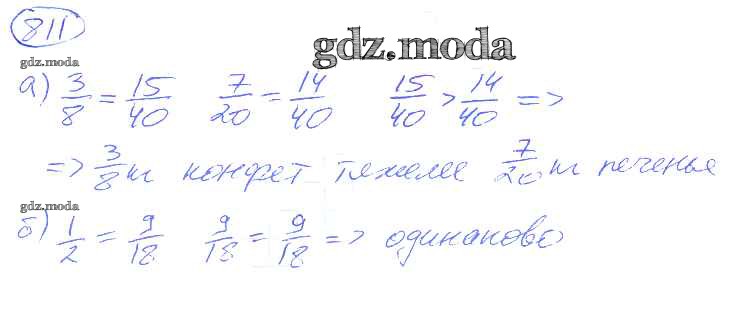 811
gdz.moda
gdz.moda
а) 3/8 = 15/40 7/20 = 14/40 15/40 > 14/40 =>
=> 3/8 т конфет тяжелее 7/20 т печенье
gdz.moda
б) 1/2 = 9/18 9/18 = 9/18 => одинаково